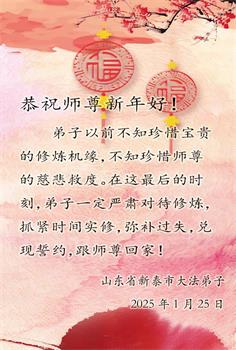 恭祝师尊新年好！
弟子以前不知珍惜宝贵
的修炼机缘，不知珍惜师尊
的慈悲救度。在这最后的时
刻，弟子一定严肃对待修炼，
抓紧时间实修，弥补过失，兑
现誓约，跟师尊回家！
山东省新泰市大法弟子
2025年1月25日